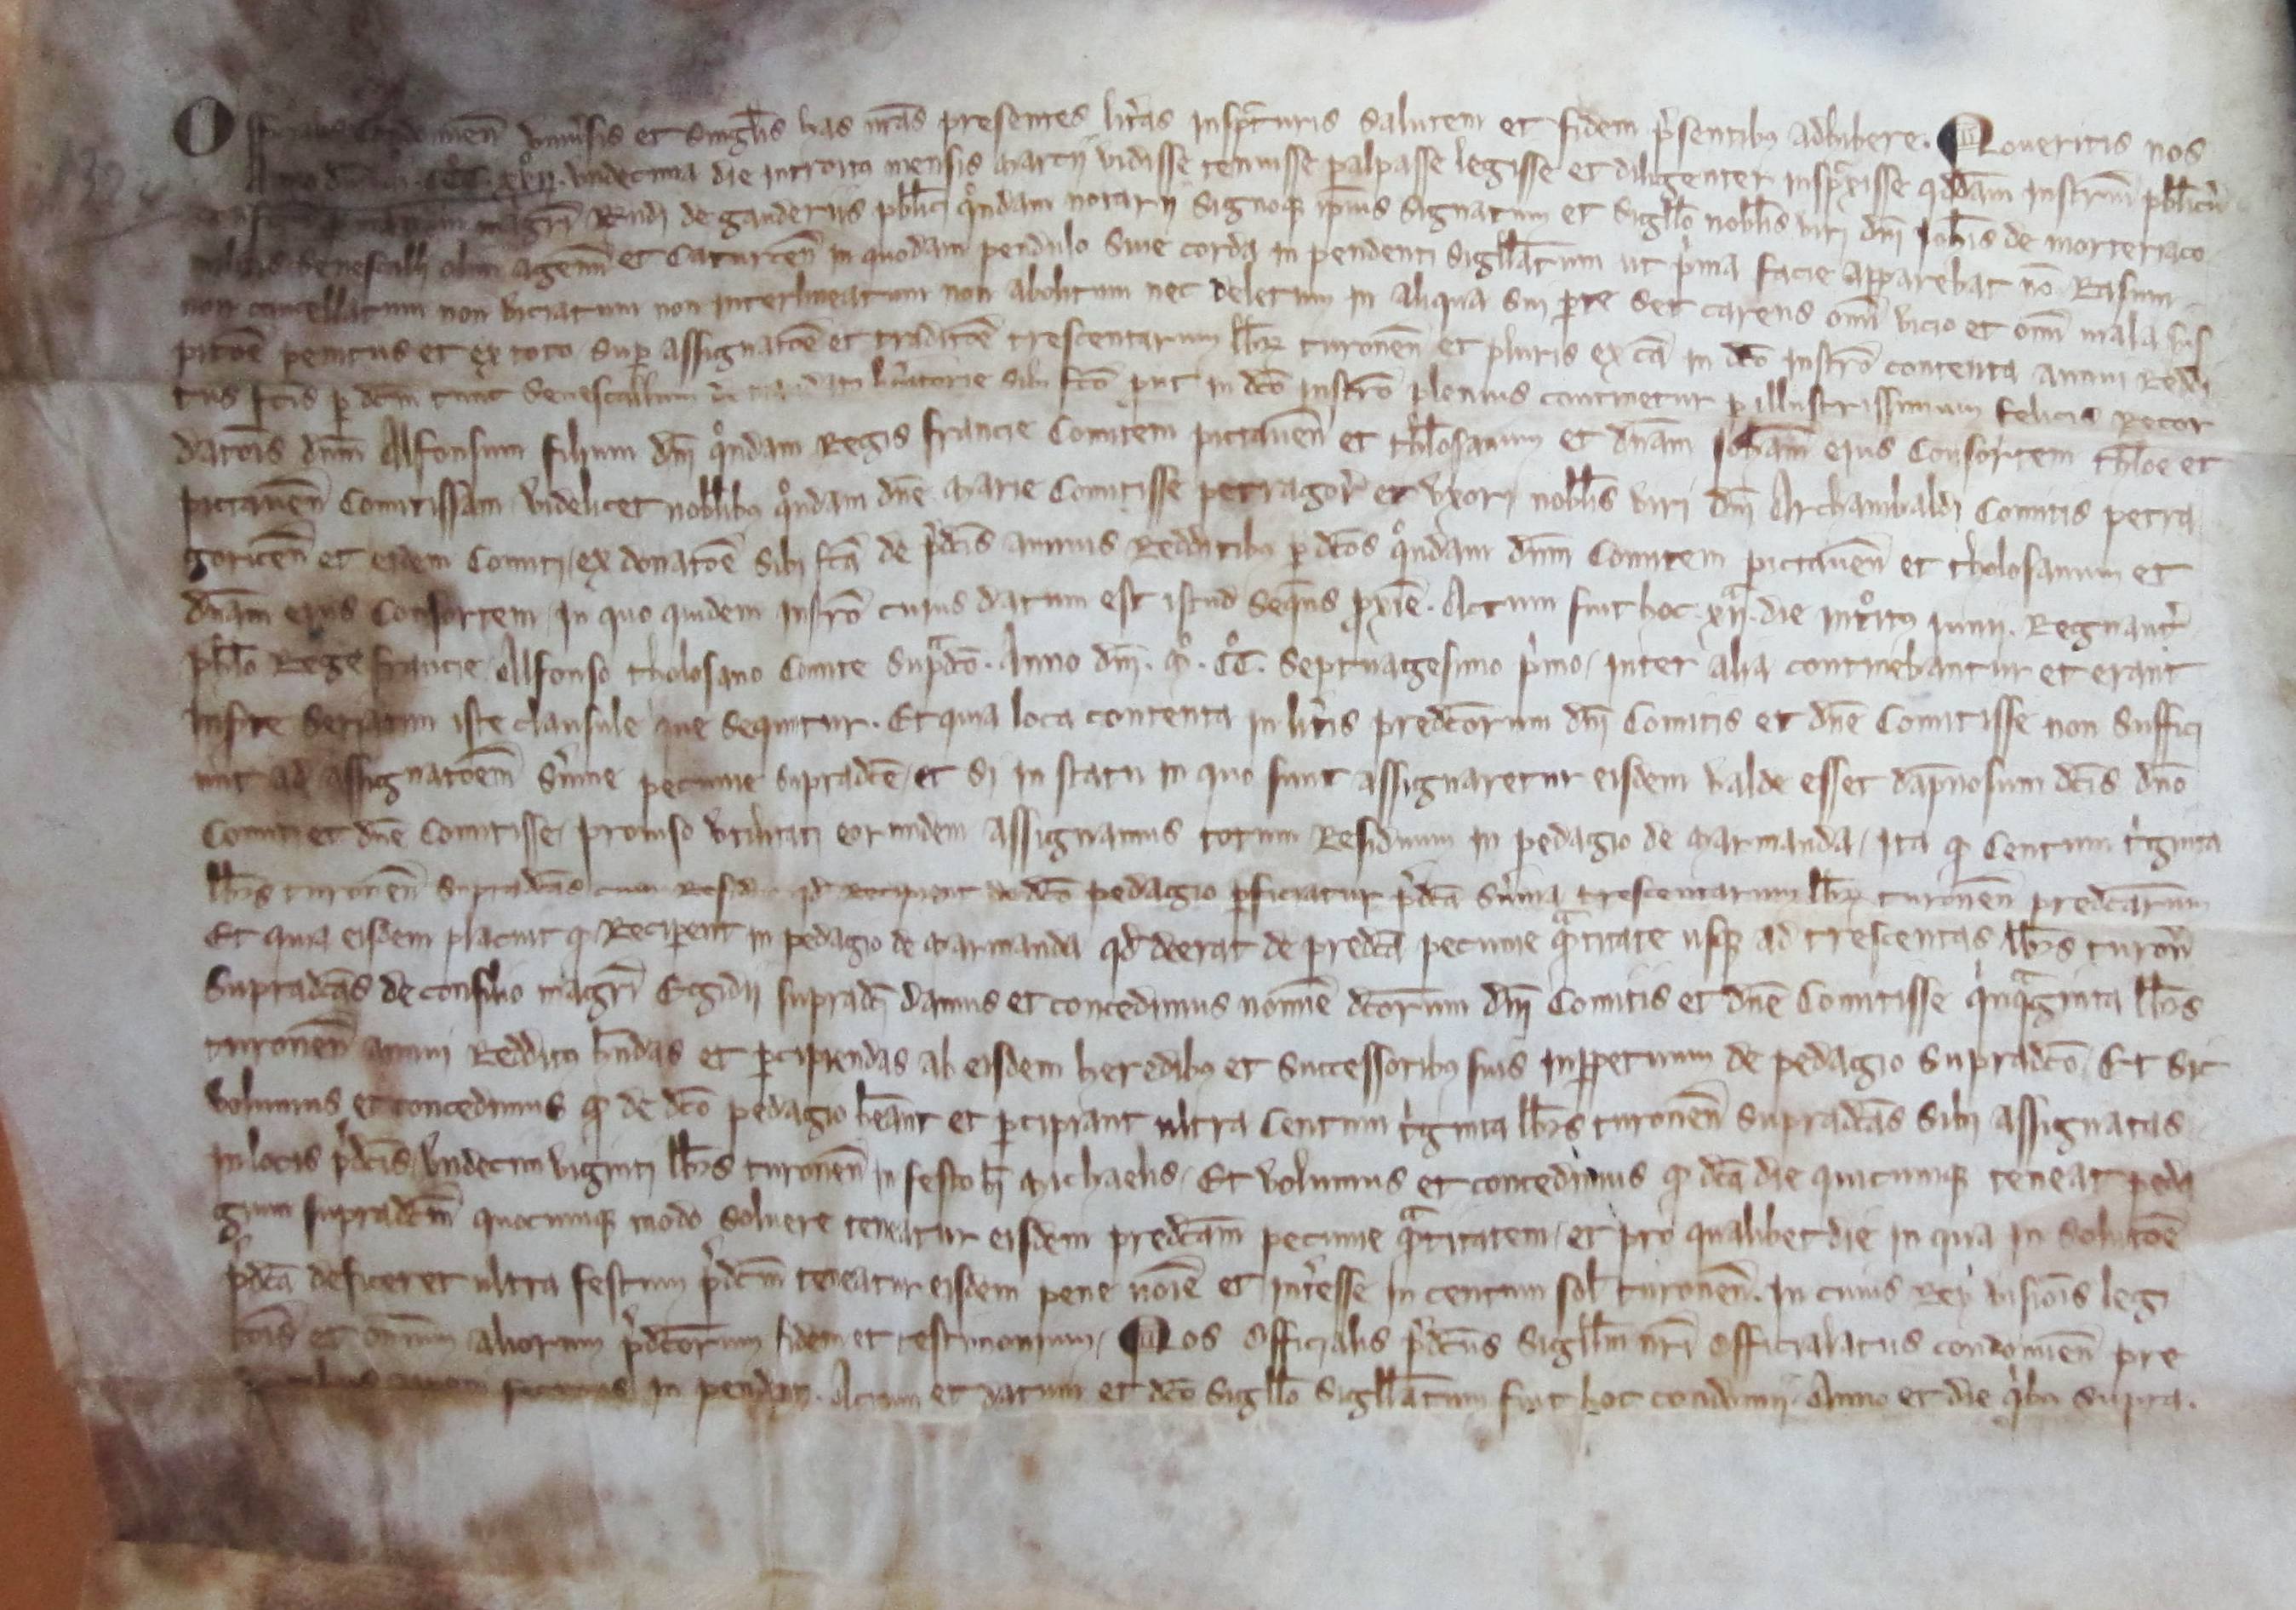 Officialis Condomien̄ vniu̓sis et singl̄is has nr̄as presentes litr̄as insp̄cturis salutem et fidem p̓sentibꝰ adhibere. Noueritis nos
Anno dn̄i undecima die introitu mensis Marcii vidisse tenuisse palpasse legisse et diligenter insp̄xisse qd̄dam instrum̄ pbl̄icū
magr̄i Rndi de ganderiis pbl̄ici qͦndam notarii signoqꝫ ip̄ius signatum et sigll̄o nobl̄is viri dn̄i Joh̄is de morteriaco
militis senescalli olim agenn̄ et Caturcen̄ in quodam pendulo siue corda in pendenti sigll̄atum ut p̓ma facie apparebat no̅ Rasum
non cancellatum non viciatum non interlineatum non abolitum nec deletum in aliqua sui p̱te set carens om̄i vicio et om̄i mala sus
pico̅e penitus et ex toto sup̱ assignato̅e et tradito̅e trescentarum lb̄rꝝ turonen̄ et pluris ex ca̅ in dc̄o instr̄o contenta annui Reddi
tus fc̄is p̱ dc̄m tunc senescallum sibi fc̄o put in dc̄o instr̄o plenius continetur p̱ illustrissimum felicis Recor
dato̅is dn̄m Alfonsum filium dn̄i qͦndam Regis francie Comitem pictauen̄ et thl̄osanum et dn̄am Joh̄am ejus Consortem thl̄oe et
pictauen̄ Comitissam videlicet nobl̄ibꝰ qͦndam dn̄e Marie Comitisse petragor̄ et vxori nobl̄is viri dn̄i Archambaldi Comitis petra
goricen̄ et eidem Comiti ex donato̅e sibi fc̄a de p̓dc̄is annuis Redditibꝰ p̱ dc̄os qͦndam dn̄m Comitem pictauen̄ et tholosanum et
dn̄am ejus Consortem in quo quidem instr̄o cujus datum est istud seqn̄s p̱xi̅e. Actum fuit hoc .xij. die int̓oitꝰ Junii. Regnant̓
phl̄o Rege francie Alfonso tholosano Comite supᵃdc̄o. Anno dn̄i. Mͦ. CͦC. septuagesimo p̓mo inter alia continebantur et erant
inserte seriatim iste clausule que sequntur. Et quia loca contenta in litr̄is predc̄orum dn̄i Comitis et dn̄e Comitisse non suffici
unt ad assignato̅em sum̄e pecunie supradc̄e et si in statu in quo sunt assignaretur eisdem valde esset dap̄nosum dc̄is dn̄o
Comiti et dn̄e Comitisse prouiso vtilitati eorundem assignamus totum Residuum in pedagio de Marmanda ita ꝙ Centum t̓ginta
lb̄ris turonen̄ supradc̄as cum Residuo qd̄ Recipient de dc̄o pedagio p̱ficiatur p̓dc̄a sum̄a trescentarum lb̄rꝝ turonen̄ predc̄arum
Et quia eisdem placuit ꝙ Recip̱ent in pedagio de Marmanda qd̄ deerat de predc̄a pecunie qᵃntitate usqꝫ ad trescentas lb̄ras turon̄
supradc̄as de consilio magr̄i Egidii supradc̄i damus et concedimus nomi̅e dc̄orum dn̄i Comitis et dn̄e Comitisse q̓nqᵃginta lb̄ras
turonen̄ annui Redditꝰ hn̄das et p̱cipiendas ab eisdem heredibꝰ et successoribꝰ suis inp̱petuum de pedagio supradc̄o. Et sic
volumus et concedimus ꝙ de dc̄o pedagio hea̅nt et p̱cipiant ultra Centum t̓ginta lb̄ras turonen̄ supradc̄as sibi assignatas
in locis p̓dc̄is vndecim viginti lb̄ras turonen̄ in festo bi̅ Michaelis. Et volumus et concedimus ꝙ dc̄a die quicumqꝫ teneat peda
gium supradc̄m quocumqꝫ modo soluere teneatur eisdem predc̄am pecunie qᵃntitatem et pro qualibet die in qua in soluto̅e
p̓dc̄a deficeret ultra festum p̓dc̄m teneatur eisdem pene noi̅e et int̓esse in centum sol̄ turonen̄. In cuius Rei visio̅is leg
to̅is et om̄ium aliorum p̓dc̄orum fidem et testimonium Nos Officialis p̓dc̄us sigll̄m nr̄i Officialatus condomien̄ pre
in pendenti. Actum et datum et dc̄o sigll̄o sigll̄atum fuit hoc condomii. Anno et die q̓bꝰ supra.